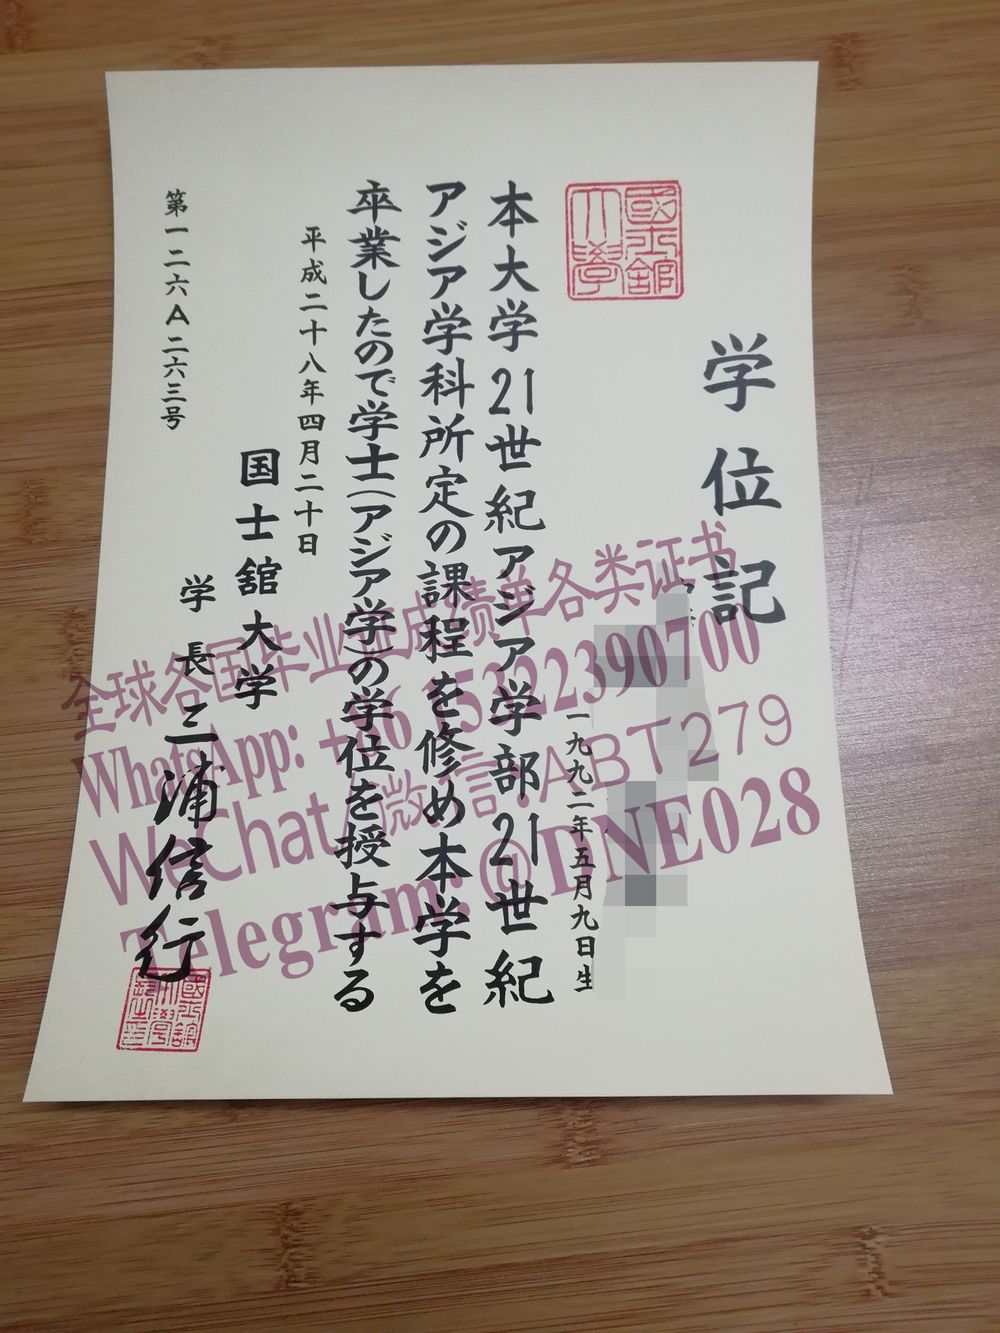 国士舘大学
学位記
一九九二年五月九日生
本大学21世紀アジア学部21世紀
アジア学科所定の課程を修め本学を
卒業したので学士(アジア学)の学位を授与する
平成二十八年四月二十日
国士舘大学
学長 三浦信行
第一二六A二六三号
全球各国毕业证成绩单各类证书
WhatsApp: +86 15322390700
WeChat/微信:ABT279
Telegram: @DNE028